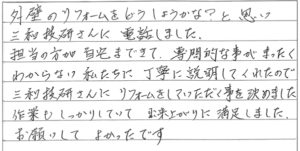 外壁のリフォームをどうしようかな？と思い
三和技研さんに電話しました。
担当の方が自宅まできて、専門的な事がまったく
わからない私たちに丁寧に説明してくれたので
三和技研さんにリフォームをしていただく事を決めました
作業もしっかりしていて 出来上がりに満足しました。
お願いして よかったです